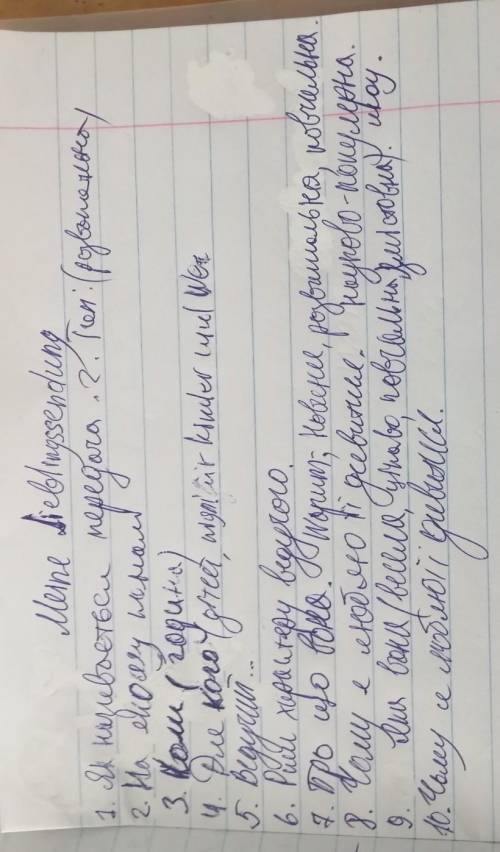 Meine Lieblingssendung
1. Як називається передача. 2. Тип: (розважальна)
2. На якому каналі
3. Коли (година)
4. Для кого (дітей, für Kinder und
5. Ведучий..
6. Риси характеру ведучого.
7. Про що вона. новини, розважальна, повчальна.
8. Чому я люблю її дивитися. науково-популярна.
9. яка вона (весела, цікава, повчальна, змістовна). шоу.
10. Чому я люблю її дивитися.